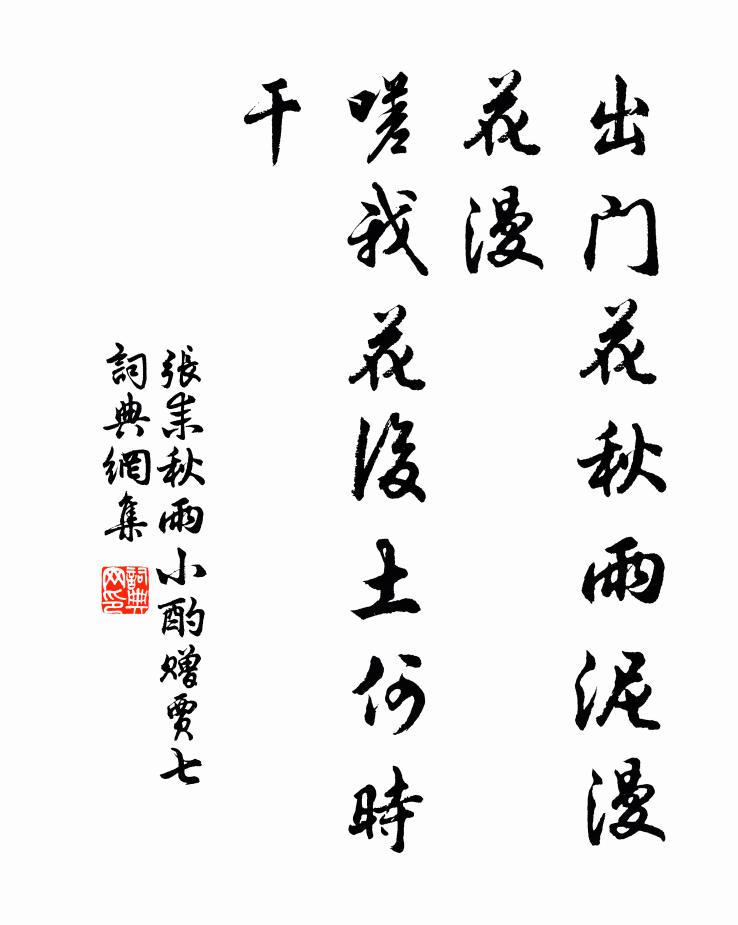 出門花秋雨泥漫
花漫
嗟我花後土何時
干
張耒秋雨小酌贈賈七
詞典網集
詞典网印